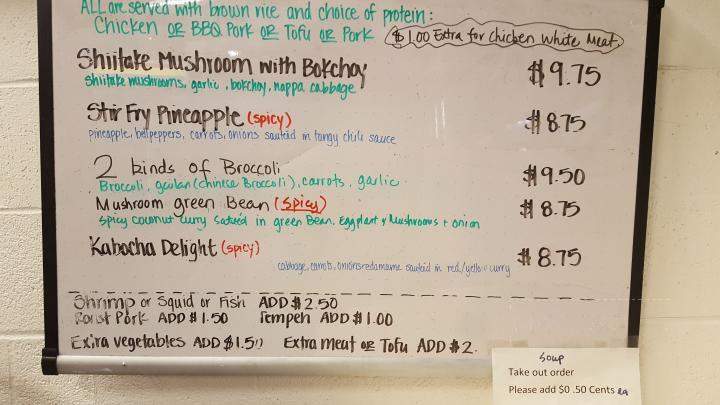 ALL are served with brown rice and choice of protein:
Chicken OR BBQ Pork OR Tofu OR Pork $1.00 Extra for chicken white meat.
Shiitake Mushroom with Bokchoy $9.75
shiitake mushrooms, garlic, bokchoy, nappa cabbage
Stir Fry Pineapple (spicy) $8.75
pineapple, bellpeppers, carrots, onions sauteid in tangy chili sauce
2 kinds of Broccoli $9.50
Broccoli, gailan (chinese Broccoli), carrots, garlic
Mushroom green Bean (spicy) $8.75
spicy coconut curry in green Bean, Eggplant & Mushrooms + onion
Kabocha Delight (spicy) $8.75
cabbage, carrots, onions edamame sauteid in red/yellow curry
Shrimp or Squid or Fish ADD $2.50
Roast Pork ADD $1.50 Tempeh ADD $1.00
Extra vegetables ADD $1.50 Extra meat OR Tofu ADD $2.
Soup
Take out order
Please add $0.50 Cents ea